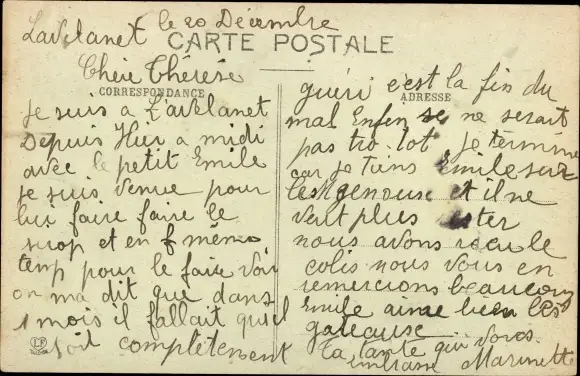 Lavelanet le 20 Décembre
CARTE POSTALE
Chère Thérèse
CORRESPONDANCE
je suis a Lavelanet
Depuis Hier a midi
avec le petit Emile
je suis venue pour
lui faire faire le
sirop et en même
temp pour le faire voir
on ma dit que dans
1 mois il fallait qu'il
soit complètement
ADRESSE
guéri c'est la fin du
mal Enfin se ne serait
pas tro tot je termine
car je tiens Emile sur
les genoux et il ne
veut plus rester
nous avons recu le
colis nous vous en
remercions beaucoup
Emile aime bien les
gateause
Ta tante qui vous
embrasse Marinette